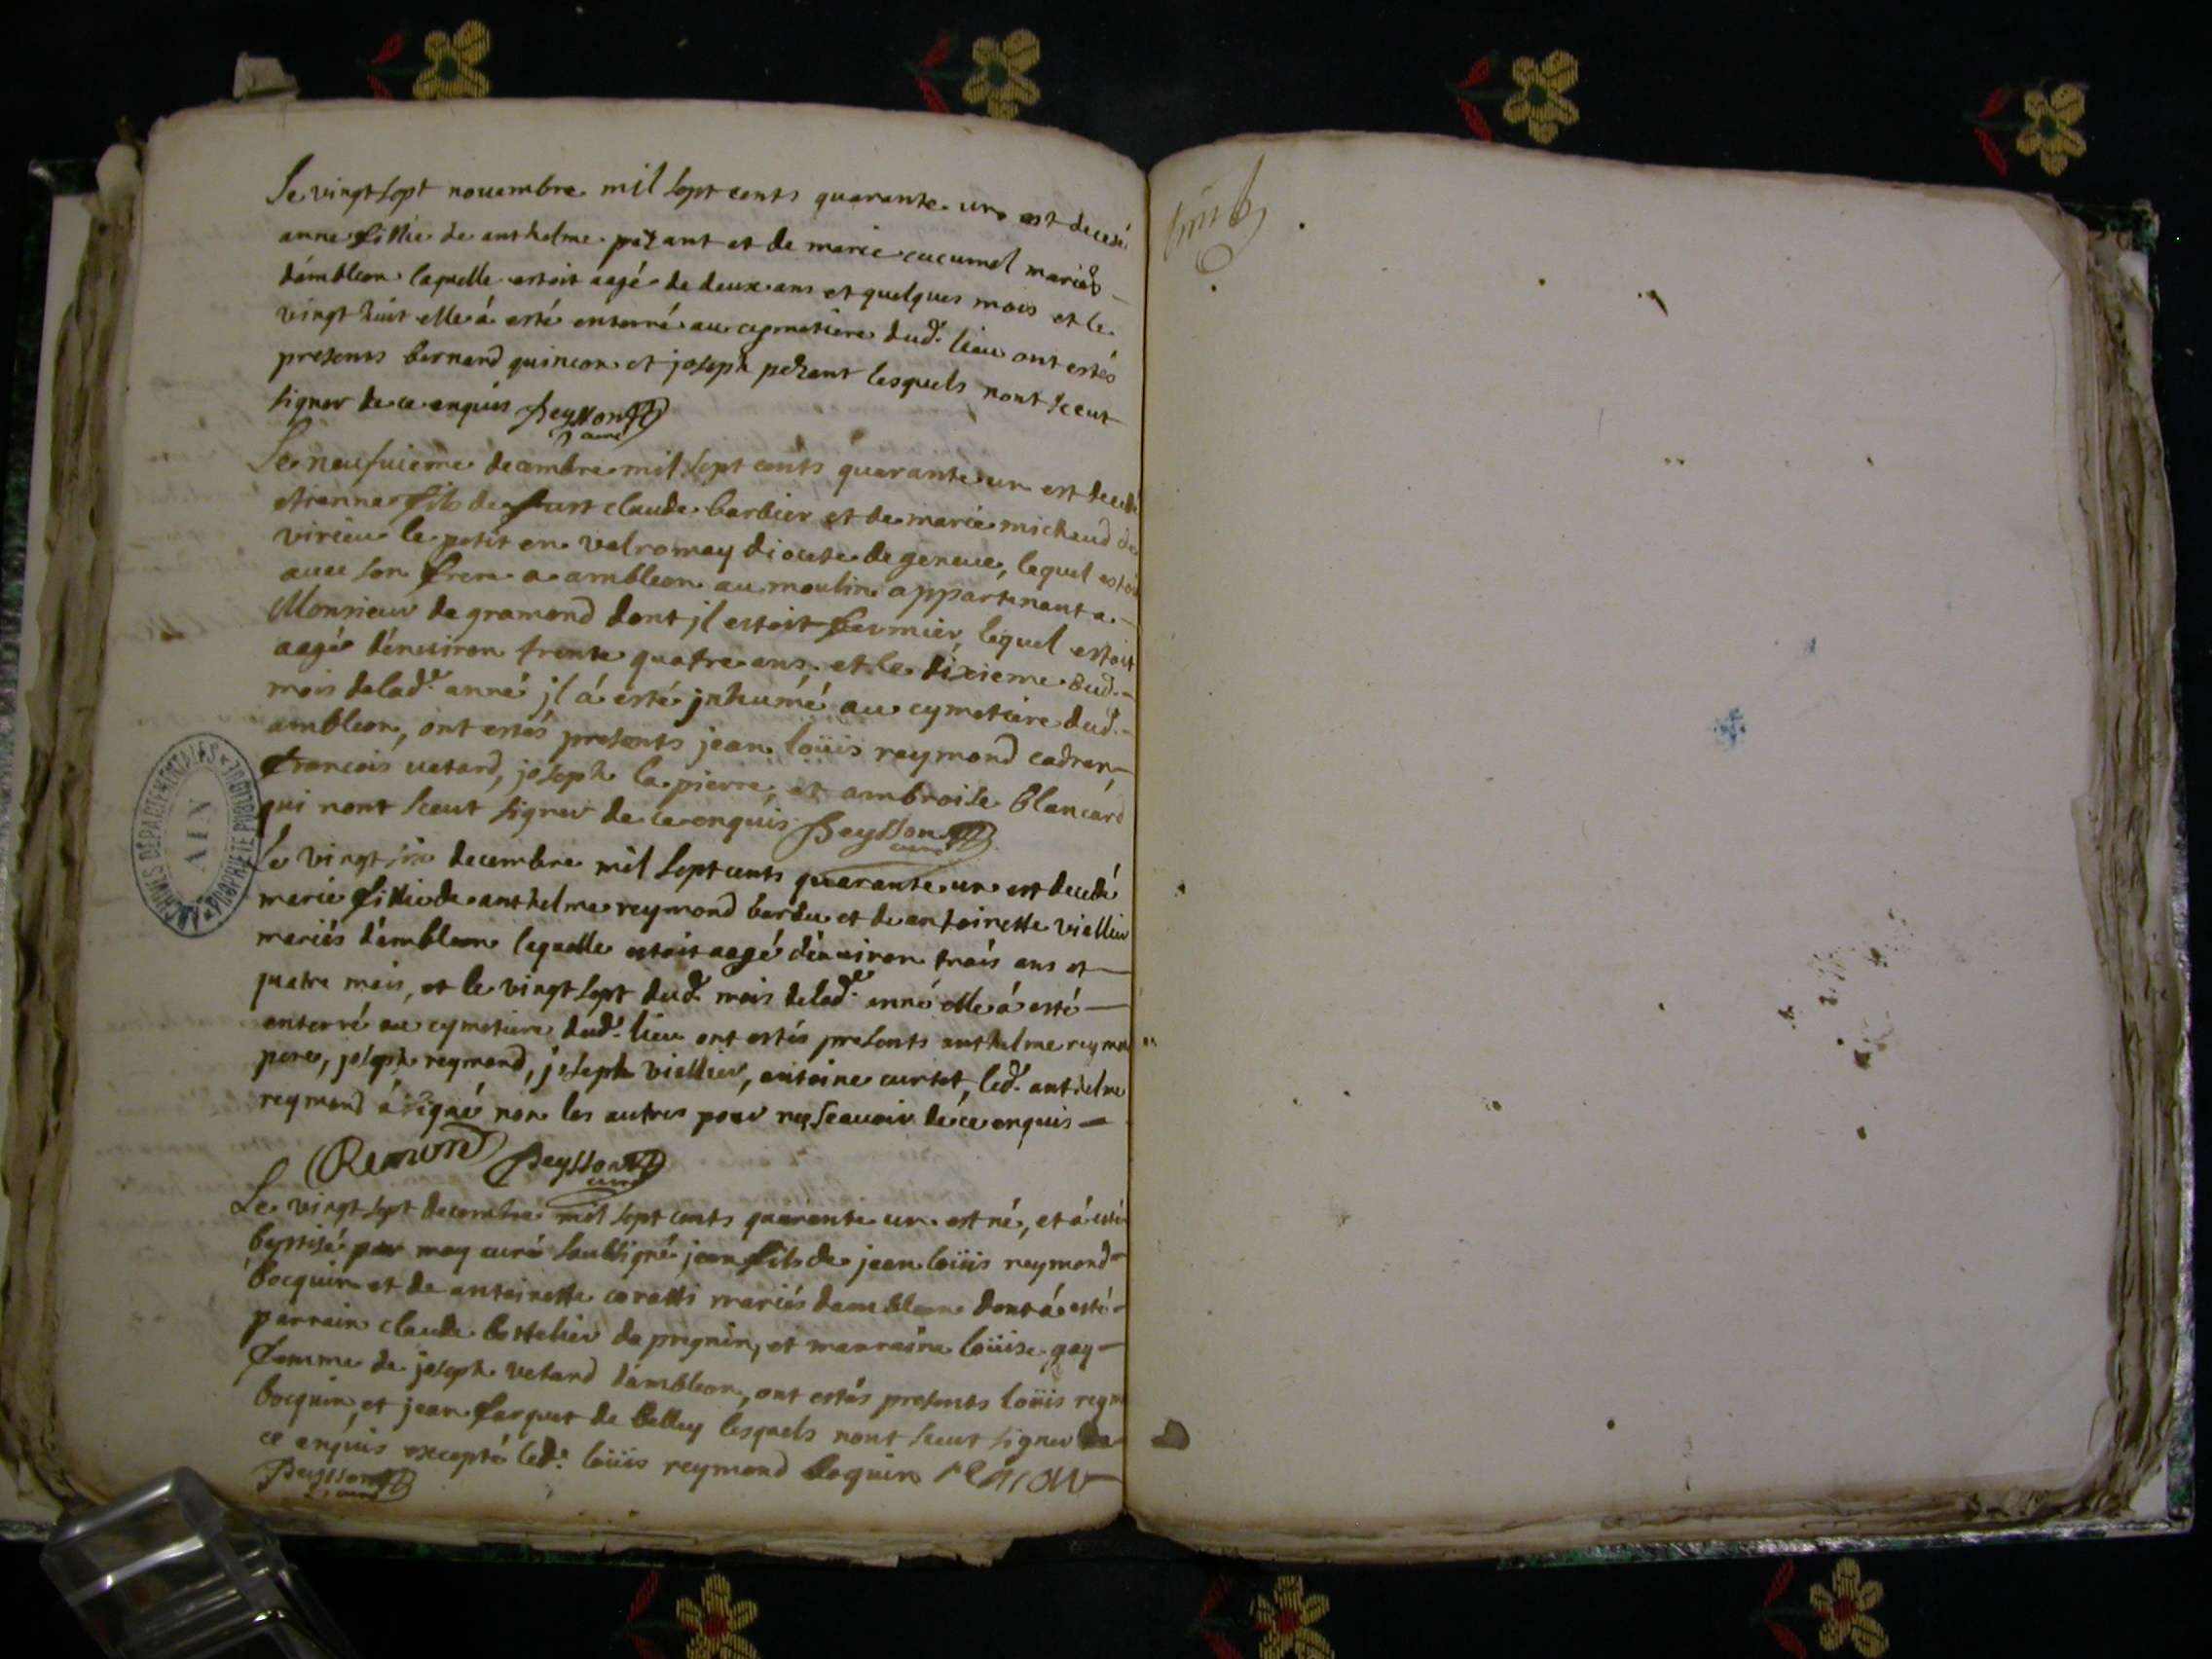 Le vingt sept nouembre mil sept cents quarante un est decedé
anne fillie de anthelme pezant et de marie cucumel mariés
dámbleon laquelle estoit aagé de deux ans et quelques mois et le
vingt huit elle á esté enterré au cymetiere dud. lieu ont estés
presents bernard quincon et joseph pezant lesquels nont sceut
signer de ce enquis Peysson
curé
Le neufuieme decembre mil sept cents quarante un est decedé
etienne fils de claude barbier et de marie michaud de
virieu le petit en valromay diocese de geneue, lequel estoit
auec son frere a ambleon au moulin appartenant a
Monsieur de gramond dont jl estoit fermier, lequel estoit
aagé dénuiron trente quatre ans, et le dixieme dud.
mois delad.e anné jl á esté jnhumé au cymetiere dud.
ambleon, ont estés presents jean loüis reymond cadran,
francois vetard, joseph la pierre, et ambroise blancard
qui nont sceut signer de ce enquis Peysson
curé
Le vingt six decembre mil sept cents quarante un est decedé
marie fillie de anthelme reymond bardu et de antoinette viellieu
mariés dámbleon laquelle estoit aagé dénuiron trois ans et
quatre mois, et le vingt sept dud. mois delad.e anné elle á esté
enterré au cymetiere dud. lieu ont estés presents anthelme reymond
pere, joseph reymond, joseph viellieu, antoine curtet, led. anthelme
reymond á signé non les autres pour ne sceauoir de ce enquis
Remond Peysson
curé
Le vingt sept decembre mil sept cents quarante un est né, et á esté
baptisé par moy curé soubsigné jean fils de jean loüis reymond
bocquin et de antoinette coratti mariés dambleon dont á esté
parrain claude bottelier de pregnin, et marraine loüise gay
femme de joseph vetard dámbleon, ont estés presents loüis reymond
bocquin, et jean farquet de belley lesquels nont sceut signer de
ce enquis excepté led. loüis reymond boquin
Peysson
curé
ARCHIVES DÉPARTEMENTALES
AIN
PROPRIÉTÉ PUBLIQUE